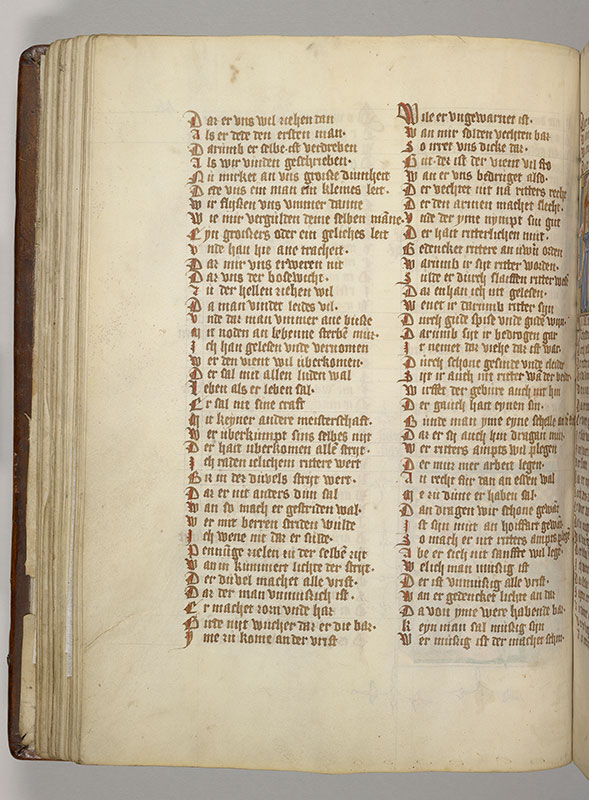 Dar er vns wil ziehen dan
Als er dete den ersten man·
Darumb er selbe ist verdreben
Als wir vinden geschrieben·
Nu mirket an vns groisse dumheit
Dete vns ein man ein kleines leit·
Wir flyssen vns vmmer danne
Wie mir vergulden deme selben māne·
Eyn groissers oder ein geliches leit
Vnde han hie ane tracheit·
Dar mir vns erweren nit
Dar vns der bosewicht·
Zu der hellen ziehen wil
Da man vindet leides vil·
Vnde dar man vmmer ane buisse
Mit noden an lebenne sterbē mus·
Ich han gelesen vnde vernomen
Wer den vient wil uberkomen·
Der sal mit allen luden wal
Leben als er leben sal·
Er sal mit sine craft
Mit keyner andere meisterschaft·
Wer uberkumpt sins selbes nijt
Der hait uberkomen alle strijt·
Ich raden ielichem rittere wert
Gn in der duvels strijt wert·
Dar er nit anders dun sal
Wan so mach er gestriden wal·
Wer mit herren striden wulde
Ich wene nit dar er sulde·
Pennige zielen zu der selbē zijt
Wan in kummert lichte der strijt·
Der duvel machet alle vrist·
Dar der man vnmuisich ist·
Er machet zorn vnde har
Gnde nijt wucher dar er die bar·
Ime zu kome an der vrist
Wile er vngewarnet ist·
Wan mir solden vechten bar
So irret vns dicke dar·
Gut der ist der vient vil fro
Wan er vns bedruget also·
Der vechtet nit nā ritters recht
Der den armen machet slecht·
Vnde der yme nympt sin gut
Der hait ritterlichen mut·
Gedencket rittere an uwern orden
Warumb ir sijt ritter worden·
Dar en han ich nit gelesen·
Wenet ir darumb ritter sijn
Durch gude spise vnde gude wijn·
Darumb sijt ir bedrogen gar
Ir nemet dar viehe dar ist war·
Durch schone gesmide vnde cleider
Der gauch hait eynen sin·
Dar er sij auch hin dragan mus·
Wer ritters ampts wil plegen
Der mus mer arbeit legen·
An recht far dan an essen wal
Me zu dune er haben sal·
An dragen wir schone gewāt
So mach er nit ritters ampts plegē
Abe er sich nit sanffte wil legē·
Welich man muisig ist
Der ist vnmuisig alle vrist·
Wan er gedencket lichte an dar
Da von yme were habende bar·
Keyn man sal muisig sijn
Wer muisig ist der machet schin·